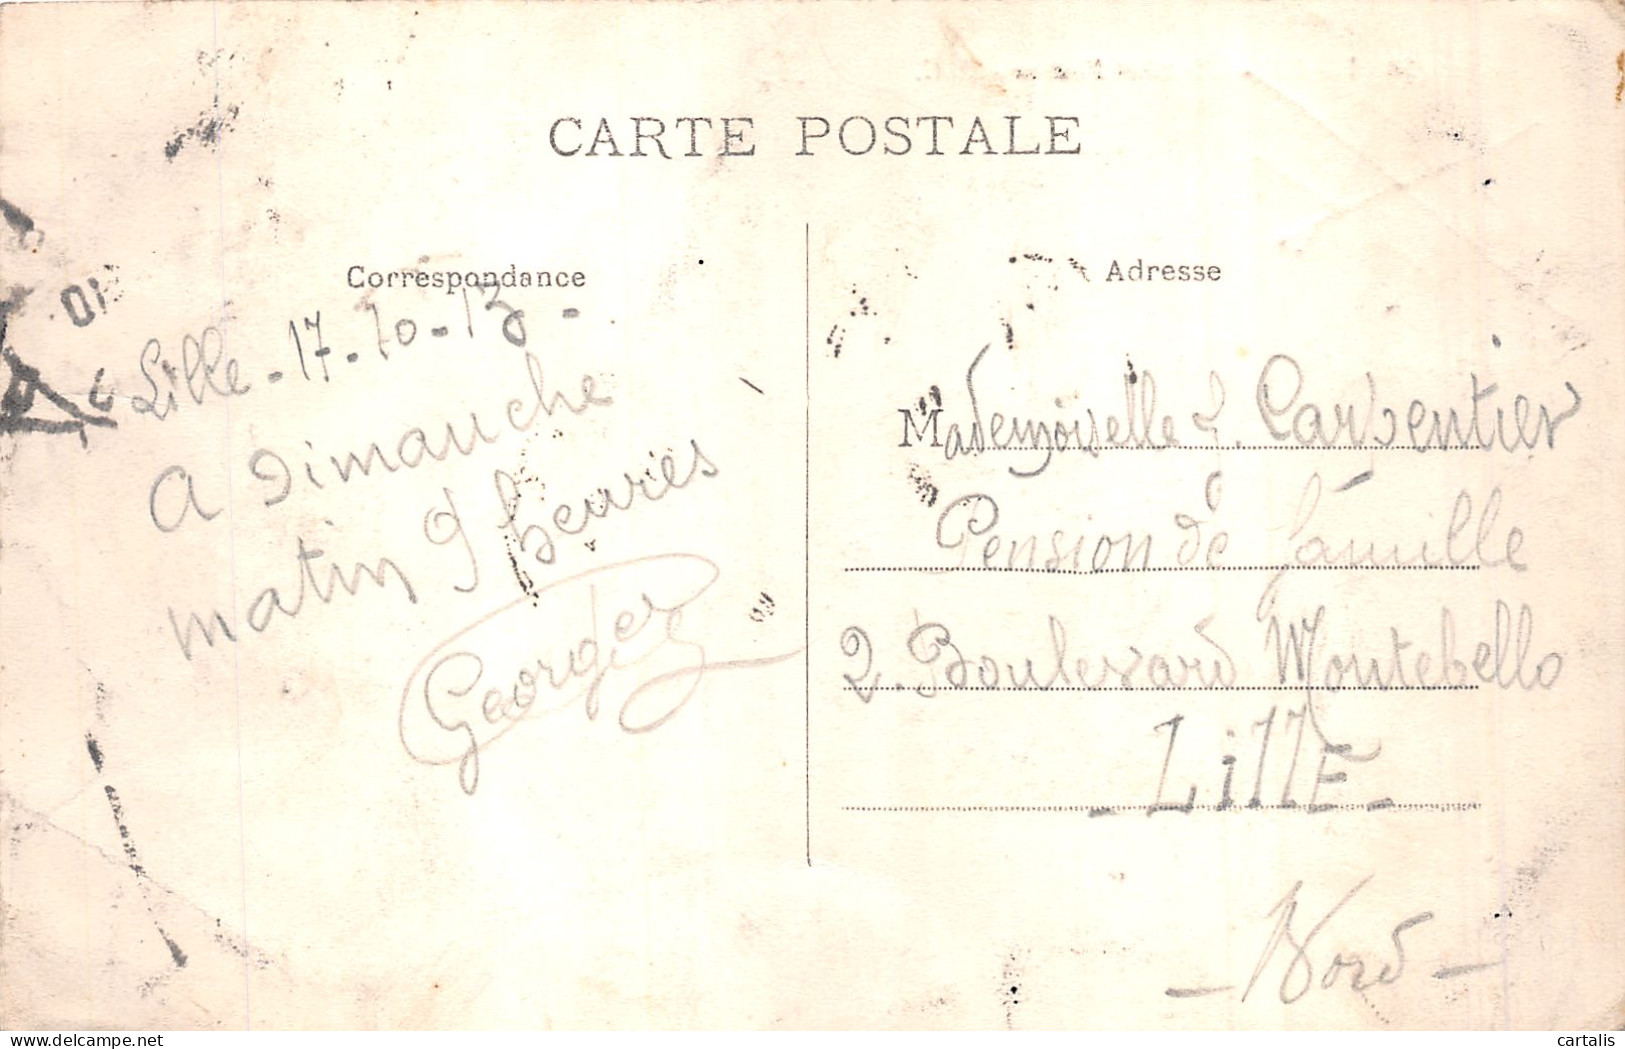 CARTE POSTALE
Correspondance
Lille - 17 - 10 - 13 -
A Dimanche
matin 9 heures
Georges
Adresse
Mademoiselle L. Carpentier
Pension de famille
2. Boulevard Montebello
- LillE -
- Nord -
delcampe.net
cartalis